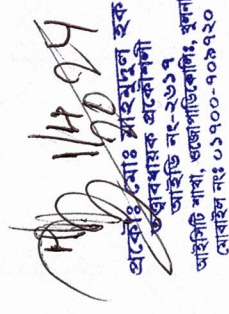 1/4
2024
প্রকৌঃ মোঃ মাহমুদুল হক
তত্ত্বাবধায়ক প্রকৌশলী
আইডি নং-২৬১৭
আইসিটি শাখা, ওজোপাডিকোলিঃ, খুলনা
মোবাইল নংঃ ০১৭০০-৭০৯৭২০